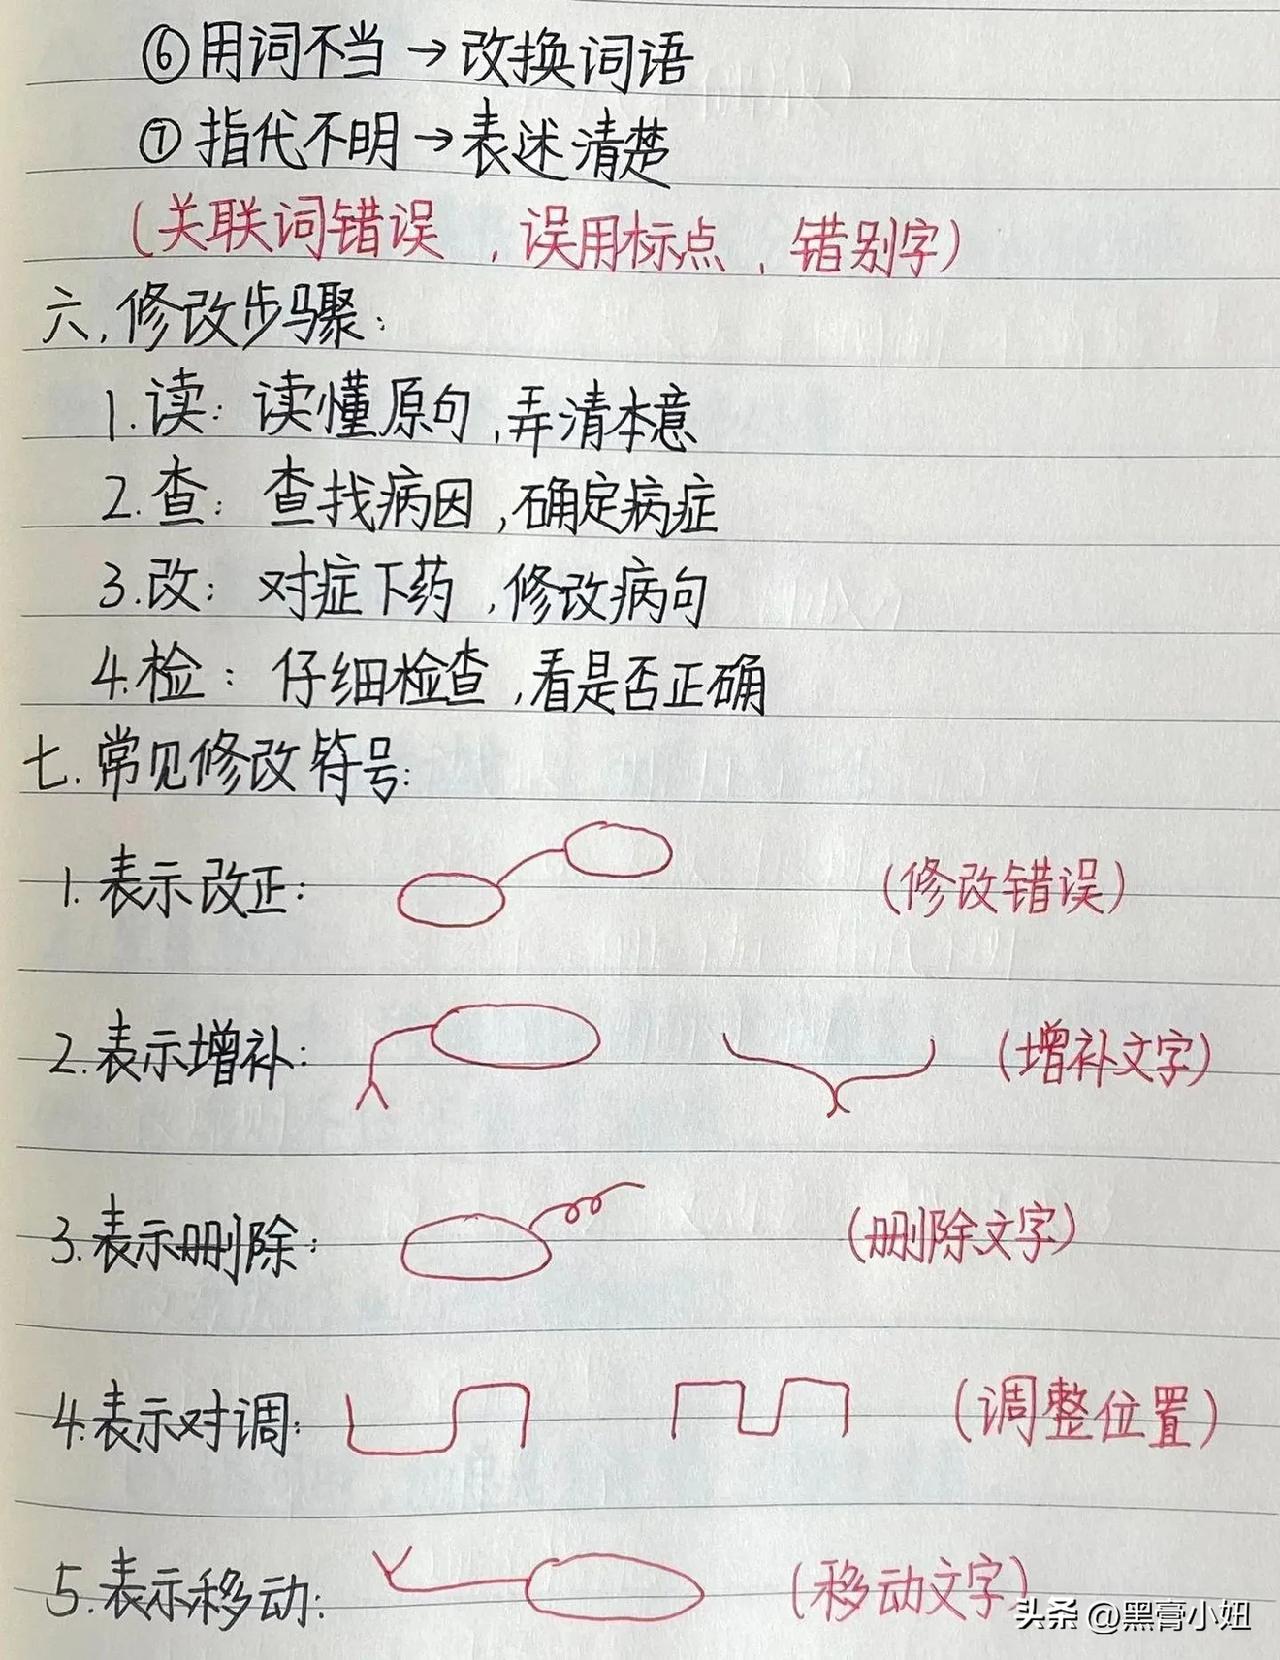 ⑥用词不当→改换词语
⑦指代不明→表述清楚
(关联词错误,误用标点,错别字)
六.修改步骤:
1.读:读懂原句,弄清本意
2.查:查找病因,确定病症
3.改:对症下药,修改病句
4.检:仔细检查,看是否正确
七.常见修改符号:
1.表示改正: (修改错误)
2.表示增补: (增补文字)
3.表示删除: (删除文字)
4.表示对调: (调整位置)
5.表示移动: (移动文字)
头条 @黑膏小妞